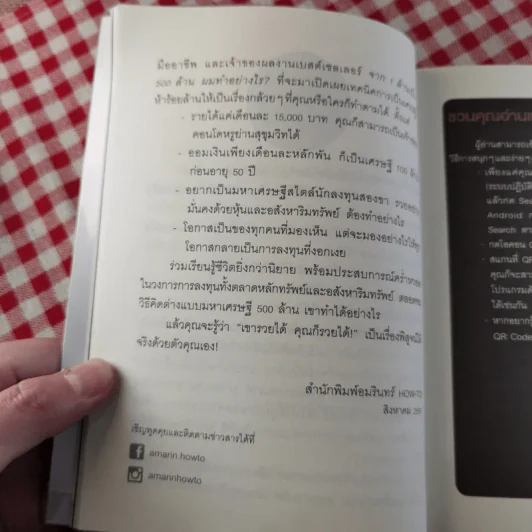 มืออาชีพ และเจ้าของผลงานเบสต์เซลเลอร์ จาก 1 ล้าน
500 ล้าน ผมทำอย่างไร? ที่จะมาเปิดเผยเทคนิคการเป็น
ห้าร้อยล้านให้เป็นเรื่องกล้วยๆ ที่คุณหรือใครก็ทำตามได้ ตั้งแต่
- รายได้แค่เดือนละ 15,000 บาท คุณก็สามารถเป็น
คอนโดหรูย่านสุขุมวิทได้
- ออมเงินเพียงเดือนละหลักพัน ก็เป็นเศรษฐี 100
ก่อนอายุ 50 ปี
- อยากเป็นมหาเศรษฐีสไตล์นักลงทุนสองขา
มั่นคงด้วยหุ้นและอสังหาริมทรัพย์ ต้องทำอย่างไร
- โอกาสเป็นของทุกคนที่มองเห็น แต่จะมองอย่างไรให้
โอกาสกลายเป็นการลงทุนที่งอกเงย
ร่วมเรียนรู้ชีวิตยิ่งกว่านิยาย พร้อมประสบการณ์
ในวงการการลงทุนทั้งตลาดหลักทรัพย์และอสังหาริมทรัพย์ ตลอดจน
วิธีคิดต่างแบบมหาเศรษฐี 500 ล้าน เขาทำได้อย่างไร
แล้วคุณจะรู้ว่า "เขารวยได้ คุณก็รวยได้!" เป็นเรื่องพิสูจน์ได้
จริงด้วยตัวคุณเอง!
สำนักพิมพ์อมรินทร์ HOW-TO
สิงหาคม
เชิญพูดคุยและติดตามข่าวสารได้ที่
amarin.howto
amarinhowto
ชวนคุณอ่าน
ผู้อ่านสามารถ
วิธีการสนุกๆ และง่ายๆ
- เพียงแค่คุณ
แล้วกด
Android
Search
- กดไอคอน
- สแกนที่ QR
คุณก็จะ
โปรแกรม
ได้เช่นกัน
- หากอยากรู้
QR Code